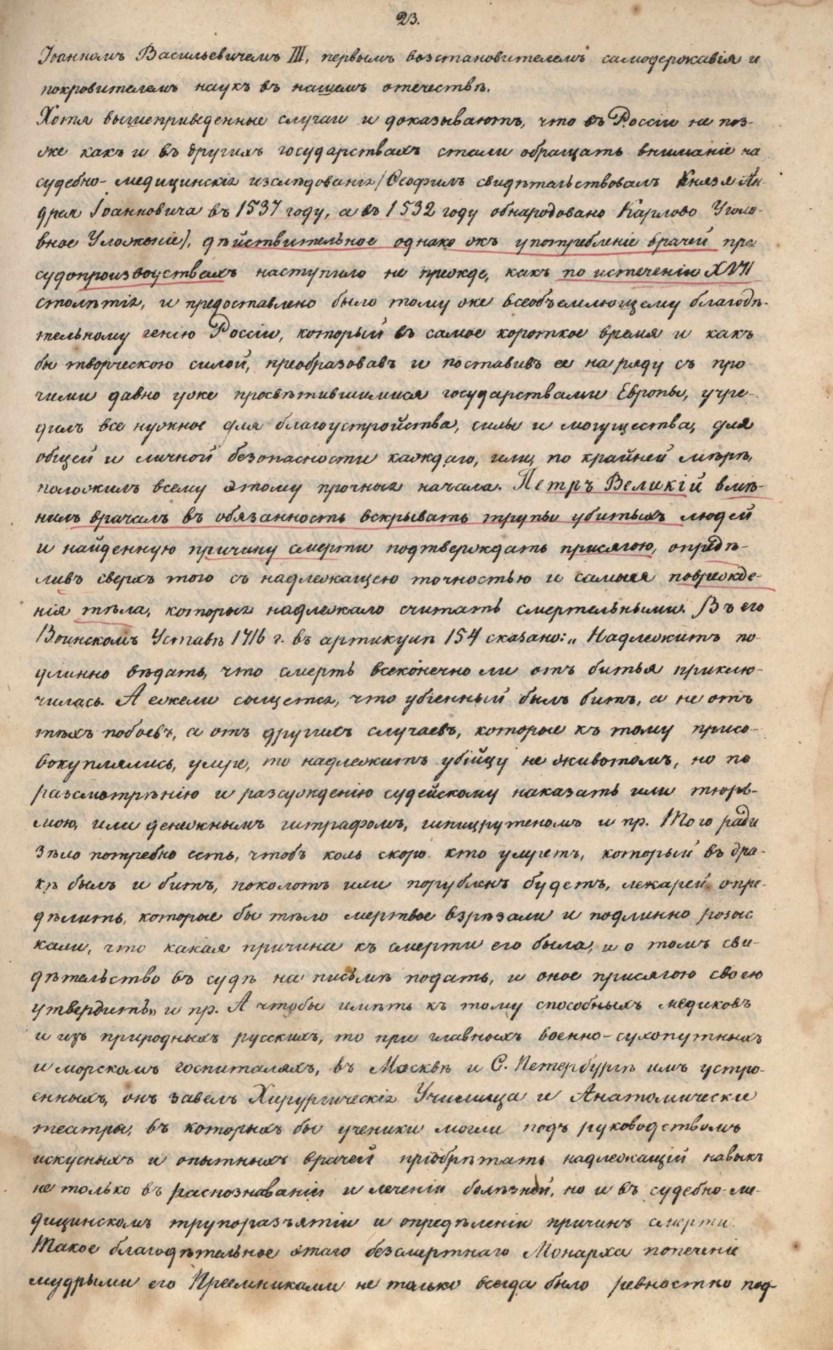 23.
Іоанномъ Васильевичемъ III, первымъ возстановителемъ самодержавія и
покровителемъ наукъ въ нашемъ отечествѣ.
Хотя вышеприведенные случаи и доказываютъ, что въ Россіи не поз-
же какъ и въ другихъ государствахъ стали обращать вниманіе на
судебно-медицинскія изслѣдованія (Ѳеофилъ свидѣтельствовалъ Князя Ан-
дрея Іоанновича въ 1537 году, а въ 1532 году обнародовано Карлово Уголо-
вное Уложеніе), дѣйствительное однако жъ употребленіе врачей при
судопроизводствахъ наступило не прежде, какъ по истеченіи XVII
столѣтія, и предоставлено было тому же всеобъемлющему благодѣ-
тельному генію Россіи, который въ самое короткое время и какъ
бы творческою силой, преобразовавъ и поставивъ ее на ряду съ про-
чими давно уже просвѣтившимися государствами Европы, учре-
дилъ все нужное для благоустройства, силы и могущества, для
общей и личной безопасности каждаго, или, по крайней мѣрѣ,
положилъ всему этому прочныя начала. Петръ Великій вмѣ-
нилъ врачамъ въ обязанность вскрывать трупы убитыхъ людей
и найденную причину смерти подтверждать присягою, опредѣ-
ливъ сверхъ того съ надлежащею точностью и самыя поврежде-
нія тѣла, которыя надлежало считать смертельными. Въ его
Воинскомъ Уставѣ 1716 г. въ артикулѣ 154 сказано: „Надлежитъ по-
длинно вѣдать, что смерть всеконечно ли отъ битья приклю-
чилась. А ежели сыщется, что убіенный былъ битъ, а не отъ
тѣхъ побоевъ, а отъ другихъ случаевъ, которые къ тому присо-
вокуплялись, умре, то надлежитъ убійцу не животомъ, но по
разсмотрѣнію и разсужденію судейскому наказать или тюрь-
мою, или денежнымъ штрафомъ, шпицрутеномъ и пр. Того ради
зѣло потребно есть, чтобъ коль скоро кто умретъ, который въ дра-
кѣ былъ и битъ, поколотъ или порубленъ будетъ, лекарей опре-
дѣлить, которые бы тѣло мертвое взрѣзали и подлинно розыс
кали, что какая причина къ смерти его была, и о томъ сви-
дѣтельство въ судѣ на письмѣ подать, и оное присягою своею
утвердить" и пр. А чтобы имѣть къ тому способныхъ медиковъ
и изъ природныхъ русскихъ, то при главныхъ военно-сухопутныхъ
и морскомъ госпиталяхъ, въ Москвѣ и С. Петербургѣ имъ устро-
енныхъ, онъ завелъ Хирургическія Училища и Анатомическіе
театры, въ которыхъ бы ученики могли подъ руководствомъ
искусныхъ и опытныхъ врачей пріобрѣтать надлежащій навыкъ
не только въ распознаваніи и леченіи болѣзней, но и въ судебно-ме-
дицинскомъ трупоразъятіи и опредѣленіи причинъ смерти.
Такое благодѣтельное этаго безсмертнаго Монарха попеченіе
мудрыми его Преемниками не только всегда было ревностно под-